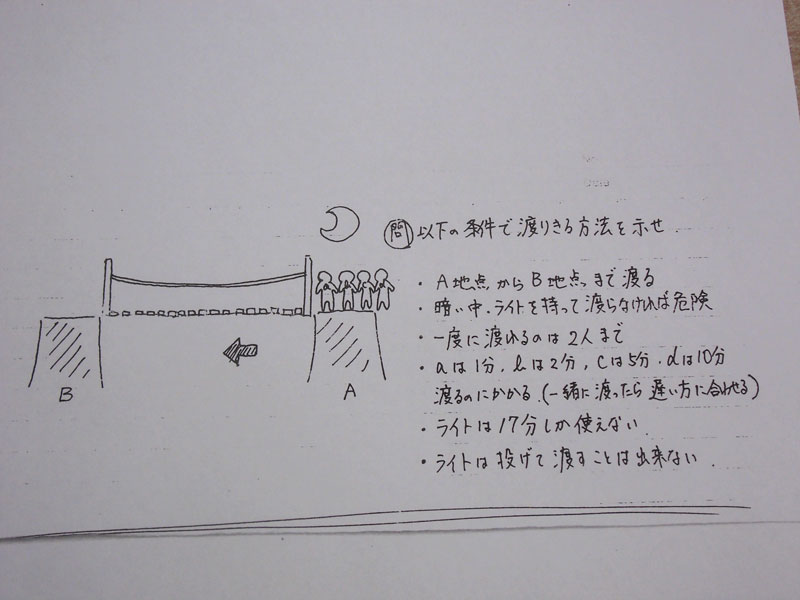 問 以下の条件で渡りきる方法を示せ.
・A地点からB地点まで渡る
・暗い中、ライトを持って渡らなければ危険
・一度に渡れるのは2人まで
・aは1分、bは2分、cは5分、dは10分
渡るのにかかる.(一緒に渡ったら遅い方に合わせる)
・ライトは17分しか使えない.
・ライトは投げて渡すことは出来ない.
B
A